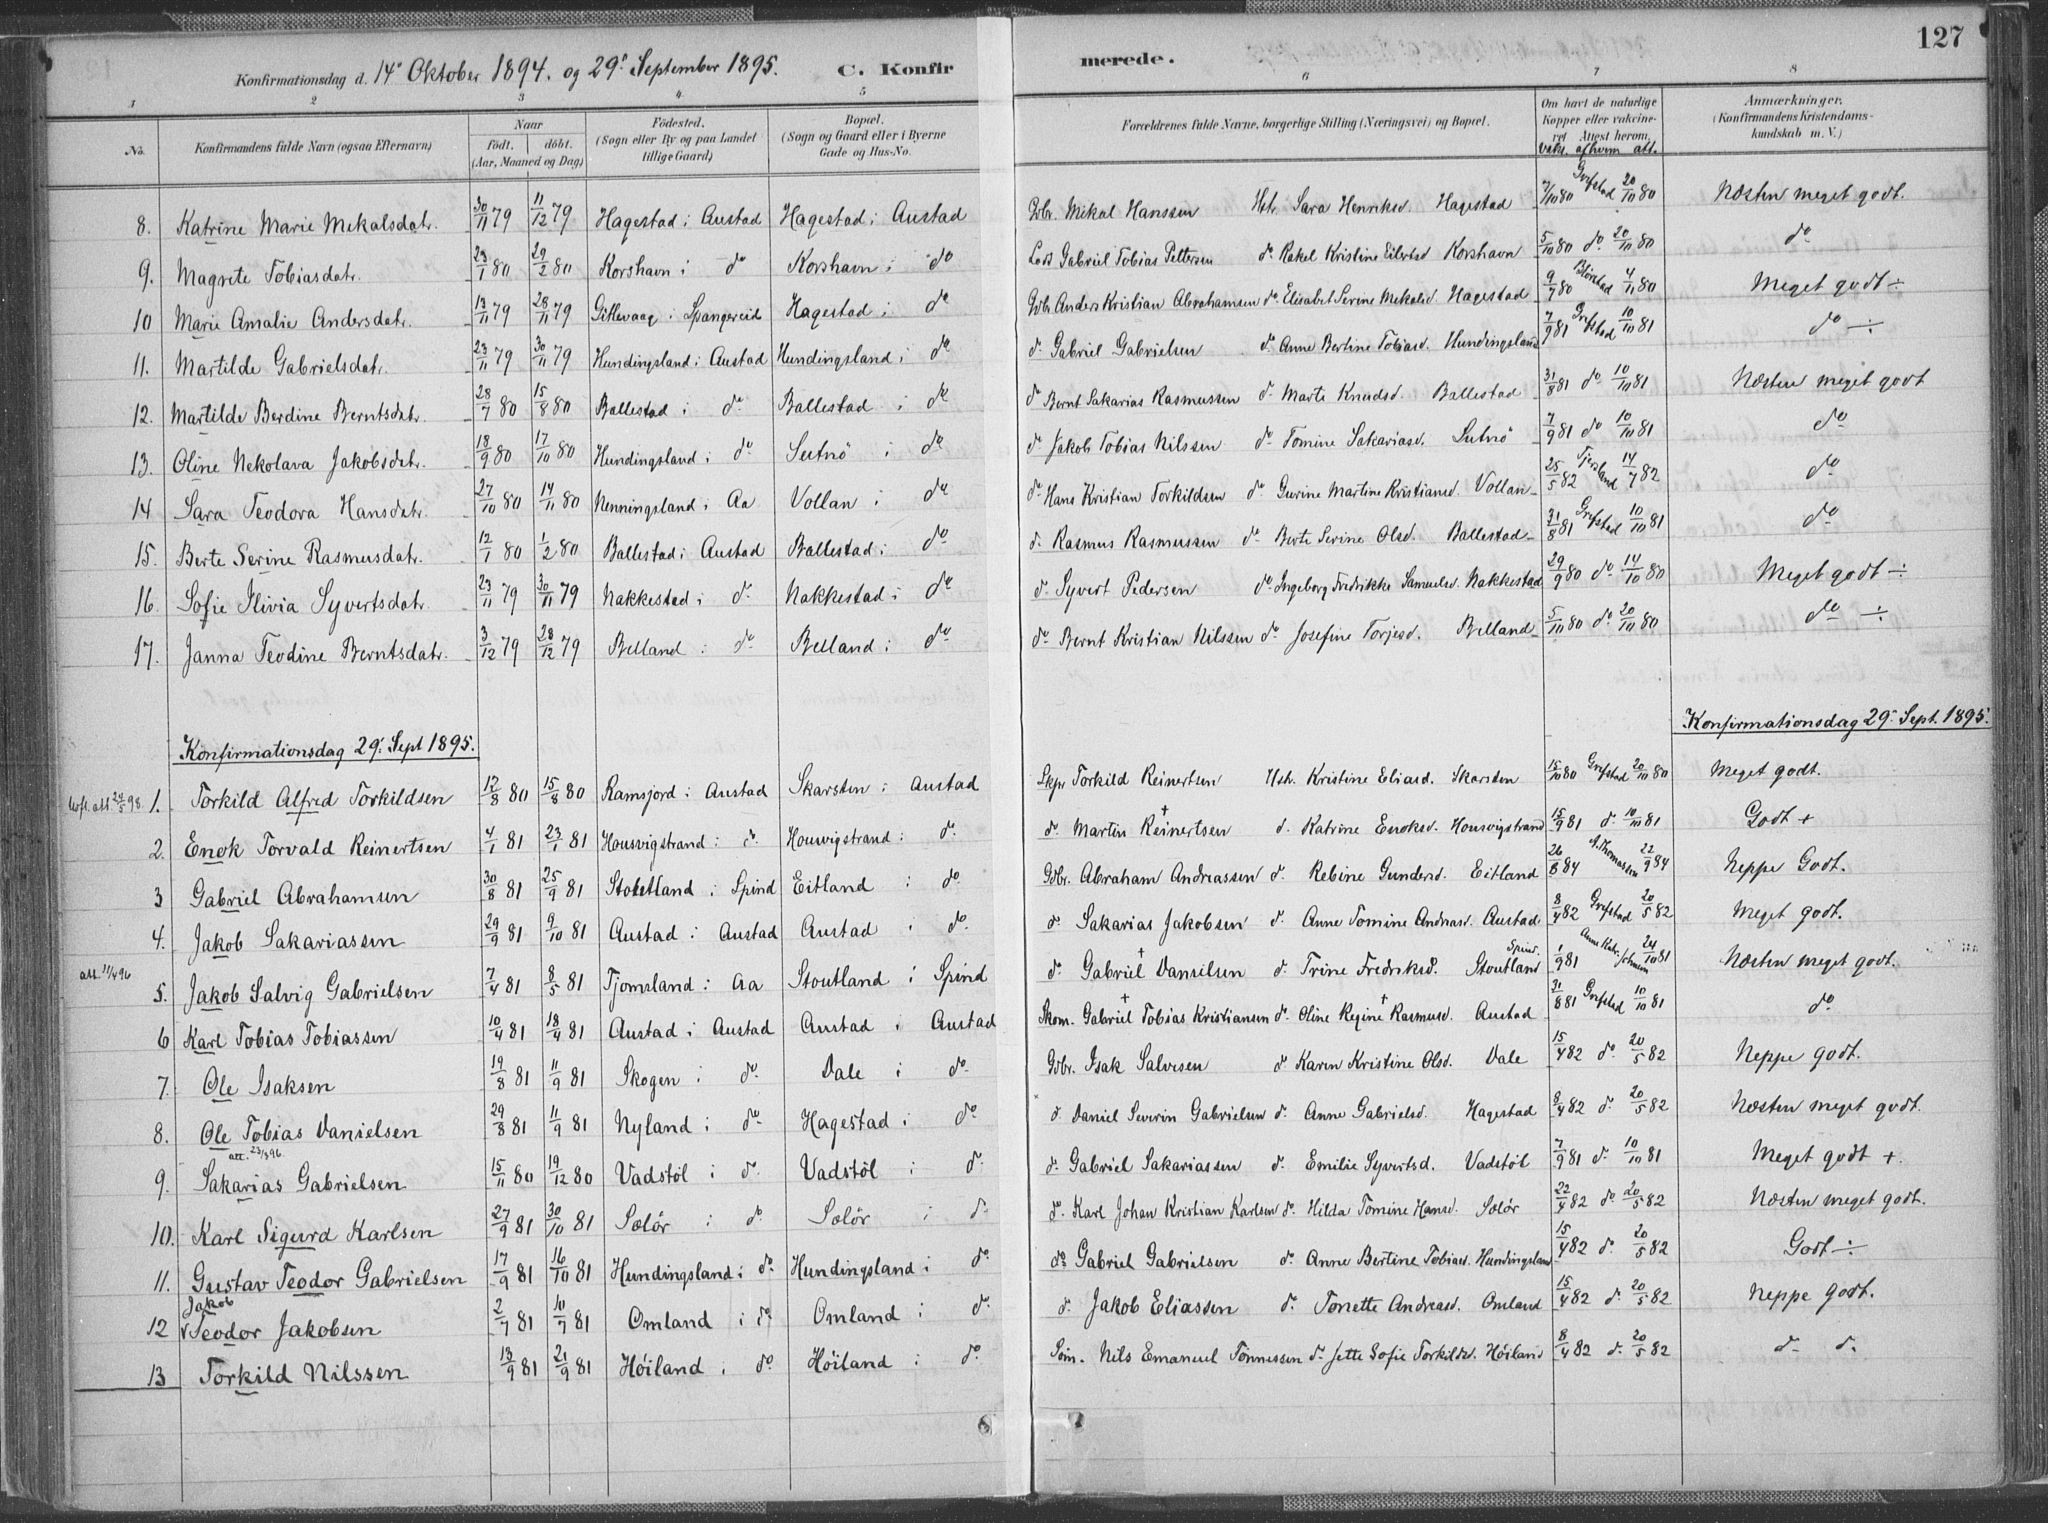 127
Konfirmationsdag d. 14de Oktober 1894. og 29de September 1895. C. Konfirmerede.
1 2 3 4 5 6 7 8
No. Konfirmandens fulde Navn (ogsaa Efternavn) Naar født. døbt. (Aar, Maaned og Dag) Fødested. (Sogn eller By og paa Landet tillige Gaard) Bopæl. (Sogn og Gaard eller i Byerne Gade og Hus-No. Forældrenes fulde Navne, borgerlige Stilling (Næringsvei) og Bopæl. Om havt de naturlige Kopper eller vaccineret. Attest herom. vakc. afhvem att. Anmærkninger. (Konfirmandens Kristendomskundskab m. V.)
8. Katrine Marie Mekalsdatr. 30/11 79 11/12 79 Hagestad i Austad Hagestad i Austad Gbr. Mikal Hanssen Hstr. Sara Henriksd. Hagestad 7/10 80 Grefstad 20/10 80 Næsten meget godt.
9. Magrete Tobiasdatr. 23/1 80 29/2 80 Korshavn i do Korshavn i do Lods Gabriel Tobias Pettersen do Rakel Kristine Eilertsd Korshavn 5/10 80 do 20/10 80 do
10 Marie Amalie Andersdatr. 13/11 79 28/11 79 Gitlevaag i Spangereid Hagestad i do Gbr Anders Kristian Abrahamsen do Elisabet Serine Mekalsd. Hagestad 9/7 80 4/11 80 Meget godt ÷
11. Martilde Gabrielsdatr. 23/11 79 30/11 79 Hundingsland i Austad Hundingsland i do d. Gabriel Gabrielsen do Anne Bertine Tobiasd. Hundingsland 7/9 81 Grefstad 10/10 81 do ÷
12. Martilde Berdine Berntsdatr. 28/7 80 15/8 80 Ballestad i do Ballestad i do do Bernt Sakarias Rasmussen do Marte Knudsd. Ballestad 31/8 81 do 10/10 81 Næsten meget godt
13. Oline Nekolava Jakobsdatr. 18/9 80 17/10 80 Hundingsland i do Sutnø i do do Jakob Tobias Nilssen do Tomine Sakariasd. Sutnø 7/9 81 do 10/10 81 do
14 Sara Teodora Hansdatr. 27/10 80 14/11 80 Henningsland i Aa Vollan i do do Hans Kristian Torkildsen do Gurine Martine Kristiansd. Vollan 25/5 82 Tjersland 14/7 82 do
15. Berte Serine Rasmusdatr. 12/1 80 1/2 80 Ballestad i Austad Ballestad i do d. Rasmus Rasmussen do Berte Serine Olsd. Ballestad 31/8 81 Grefstad 10/10 81 do
16. Sofie Ilivia Syvertsdatr. 23/11 79 30/11 79 Nakkestad i do Nakkestad i do d. Syvert Pedersen do Ingeborg Fredrikke Samuelsd. Nakkestad 29/9 80 do 14/10 80 Meget godt ÷
17. Janna Teodine Berntsdatr. 3/12 79 28/12 79 Belland i do Belland i do do Bernt Kristian Nilssen do Josefine Torjesd. Belland 5/10 80 do 20/10 80 do ÷
Konfirmationsdag 29. Sept 1895. Konfirmationsdag 29. Sept. 1895.
att 24/5 98 1. Torkild Alfred Torkildsen 12/8 80 15/8 80 Ramsjord i Austad Skarsten i Austad Skpr Torkild Reinertsen Hstr. Kristine Eliasd. Skarsten 15/10 80 Grefstad 20/10 80 Meget godt.
2. Enok Torvald Reinertsen 4/1 81 23/1 81 Housvigstrand i do Housvigstrand i do d. Martin Reinertsen † d. Katrine Enoksd. Housvigstrand 15/9 81 d. 10/10 81 Godt +
3 Gabriel Abrahamsen 30/8 81 25/9 81 Stoketland i Spind Eitland i do Gbr. Abraham Andreassen d. Rebine Gundersd. Eitland 26/8 84 A. Thomassen 22/9 84 Neppe Godt.
4. Jakob Sakariassen 29/9 81 9/10 81 Austad i Austad Austad i do d. Sakarias Jakobsen d. Anne Tomine Andreasd. Austad 8/4 82 Grefstad 20/5 82 Meget godt.
att. 11/4 96 5. Jakob Salvig Gabrielsen 7/4 81 8/5 81 Tjomsland i Aa Stoutland i Spind d. Gabriel Danielsen † d. Trine Fredriksd. Stoutland Spind. 1/9 81 24/10 81 Næsten meget godt.
6 Karl Tobias Tobiassen 10/4 81 18/4 81 Austad i Austad Austad i Austad Skom. Gabriel Tobias Kristiansen † d. Oline Regine Rasmusd. † Austad 31/8 81 Grefstad 10/10 81 do
7. Ole Isaksen 19/8 81 11/9 81 Skogen i do Dale i do Gbr. Isak Salvesen d Karen Kristine Olsd. Dale 15/4 82 do 20/5 82 Neppe godt.
8. Ole Tobias Danielsen 29/8 81 11/9 81 Nyland i do Hagestad i do d. Daniel Severin Gabrielsen d. Anne Gabrielsd. Hagestad 8/4 82 d. 20/5 82 Næsten meget godt.
att. 23/3 96.
9. Sakarias Gabrielsen 15/11 80 19/12 80 Vadstøl i d. Vadstøl i d. d. Gabriel Sakariassen d. Emilie Syvertsd. Vadstøl 7/9 81 d. 10/10 81 Meget godt +.
10. Karl Sigurd Karlsen 27/9 81 30/10 81 Sælør i do Sælør i d. d. Karl Johan Kristian Karlsen d. Hilda Tomine Hansd. Sælør 22/4 82 do 20/5 82 Næsten meget godt.
11. Gustav Teodor Gabrielsen 17/9 81 16/10 81 Hundingsland i do Hundingsland i do do Gabriel Gabrielsen d. Anne Bertine Tobiasd. Hundingsland 15/4 82 d. 20/5 82 Godt ÷
Jakob
12 Teodor Jakobsen 2/7 81 10/7 81 Omland i do Omland i d. d. Jakob Eliassen d. Tonette Andreasd. Omland 15/4 82 d. 20/5 82 Neppe godt.
13 Torkild Nilssen 13/9 81 21/9 81 Høiland i do Høiland i do Søm. Nils Emanuel Tønnessen d. Jette Sofie Torkildsd. Høiland 8/4 82 d. 20/5 82 d. d.